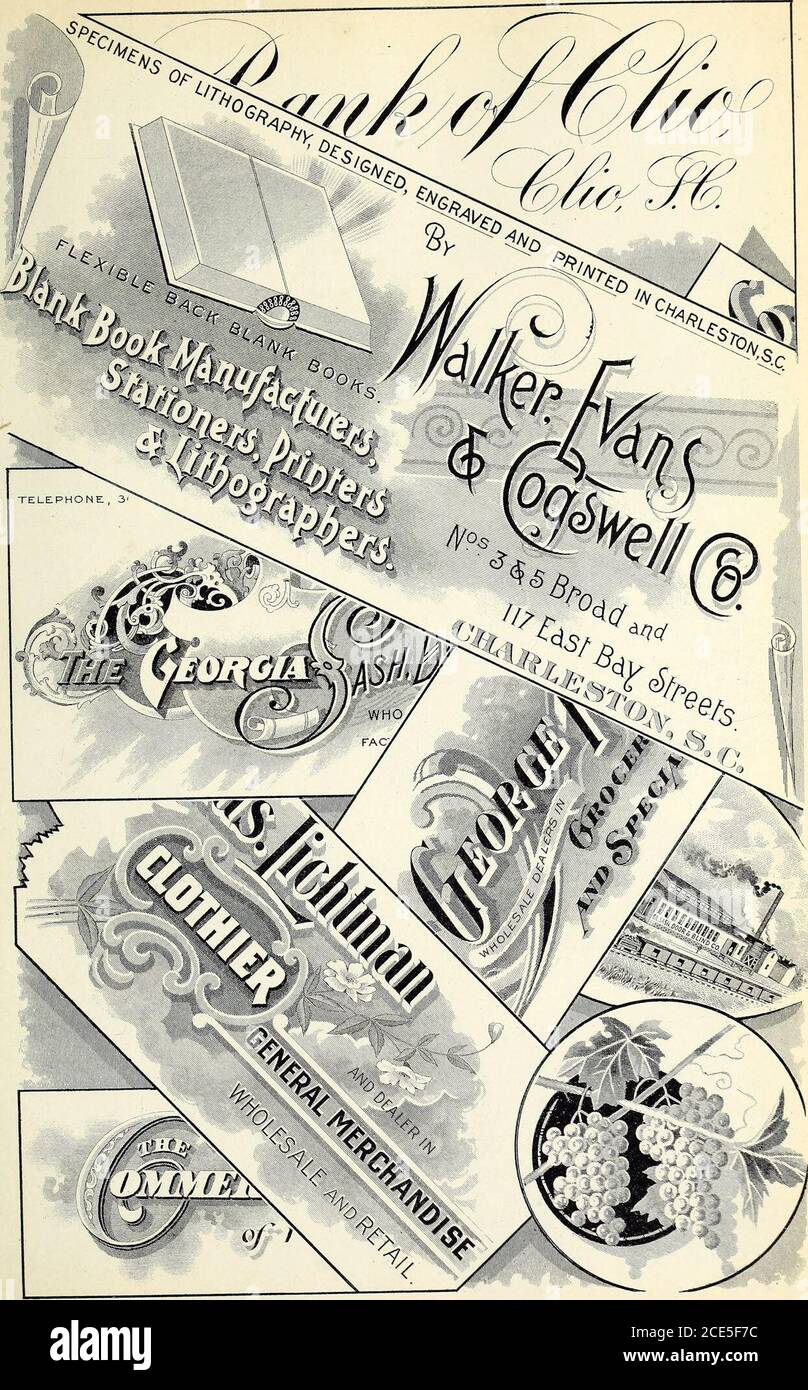 Bank of Clio
Clio, S.C.
SPECIMENS OF LITHOGRAPHY, DESIGNED, ENGRAVED AND PRINTED IN CHARLESTON, S.C.
By
Walker, Evans
& Cogswell Co.
Nos 3 & 5 Broad and
117 East Bay Streets.
CHARLESTON, S.C.
FLEXIBLE BACK BLANK BOOKS.
Blank Book Manufacturers,
Stationers, Printers
& Lithographers.
Co
TELEPHONE, 3
THE GEORGIA SASH, D
WHO
FAC
GEORGE
WHOLESALE DEALERS IN
GROCER
AND SPECIA
DOOR & BLIND CO.
us. Lichtman
CLOTHIER
AND DEALER IN
GENERAL MERCHANDISE
WHOLESALE AND RETAIL.
THE
COMMER
of
a
alamy
Image ID: 2CE5F7C
www.alamy.com